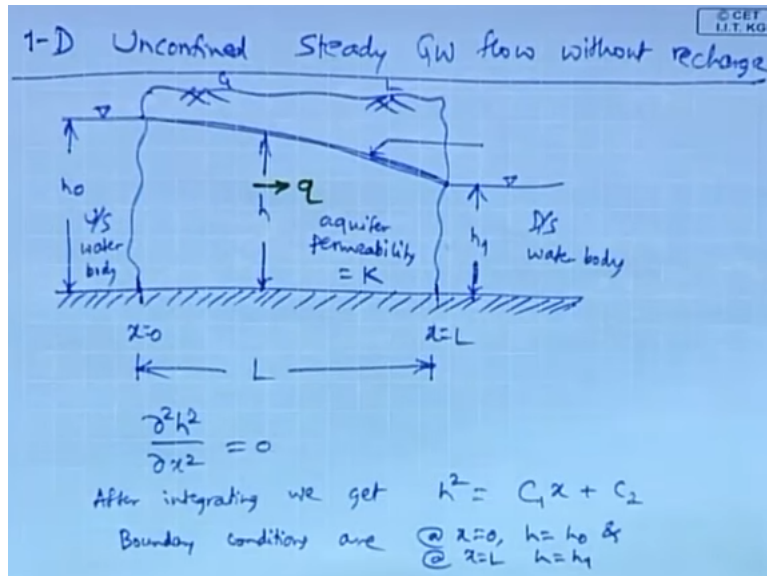 © CET
I.I.T. KG
1-D Unconfined Steady GW flow without recharge
G L
h₀
U/S
water
body
h
q
aquifer
permeability
= K
h₁
D/S
water body
x=0
x=L
L
∂²h²/∂x² = 0
After integrating we get h² = C₁x + C₂
Boundary conditions are @ x=0, h= h₀ &
@ x=L h= h₁